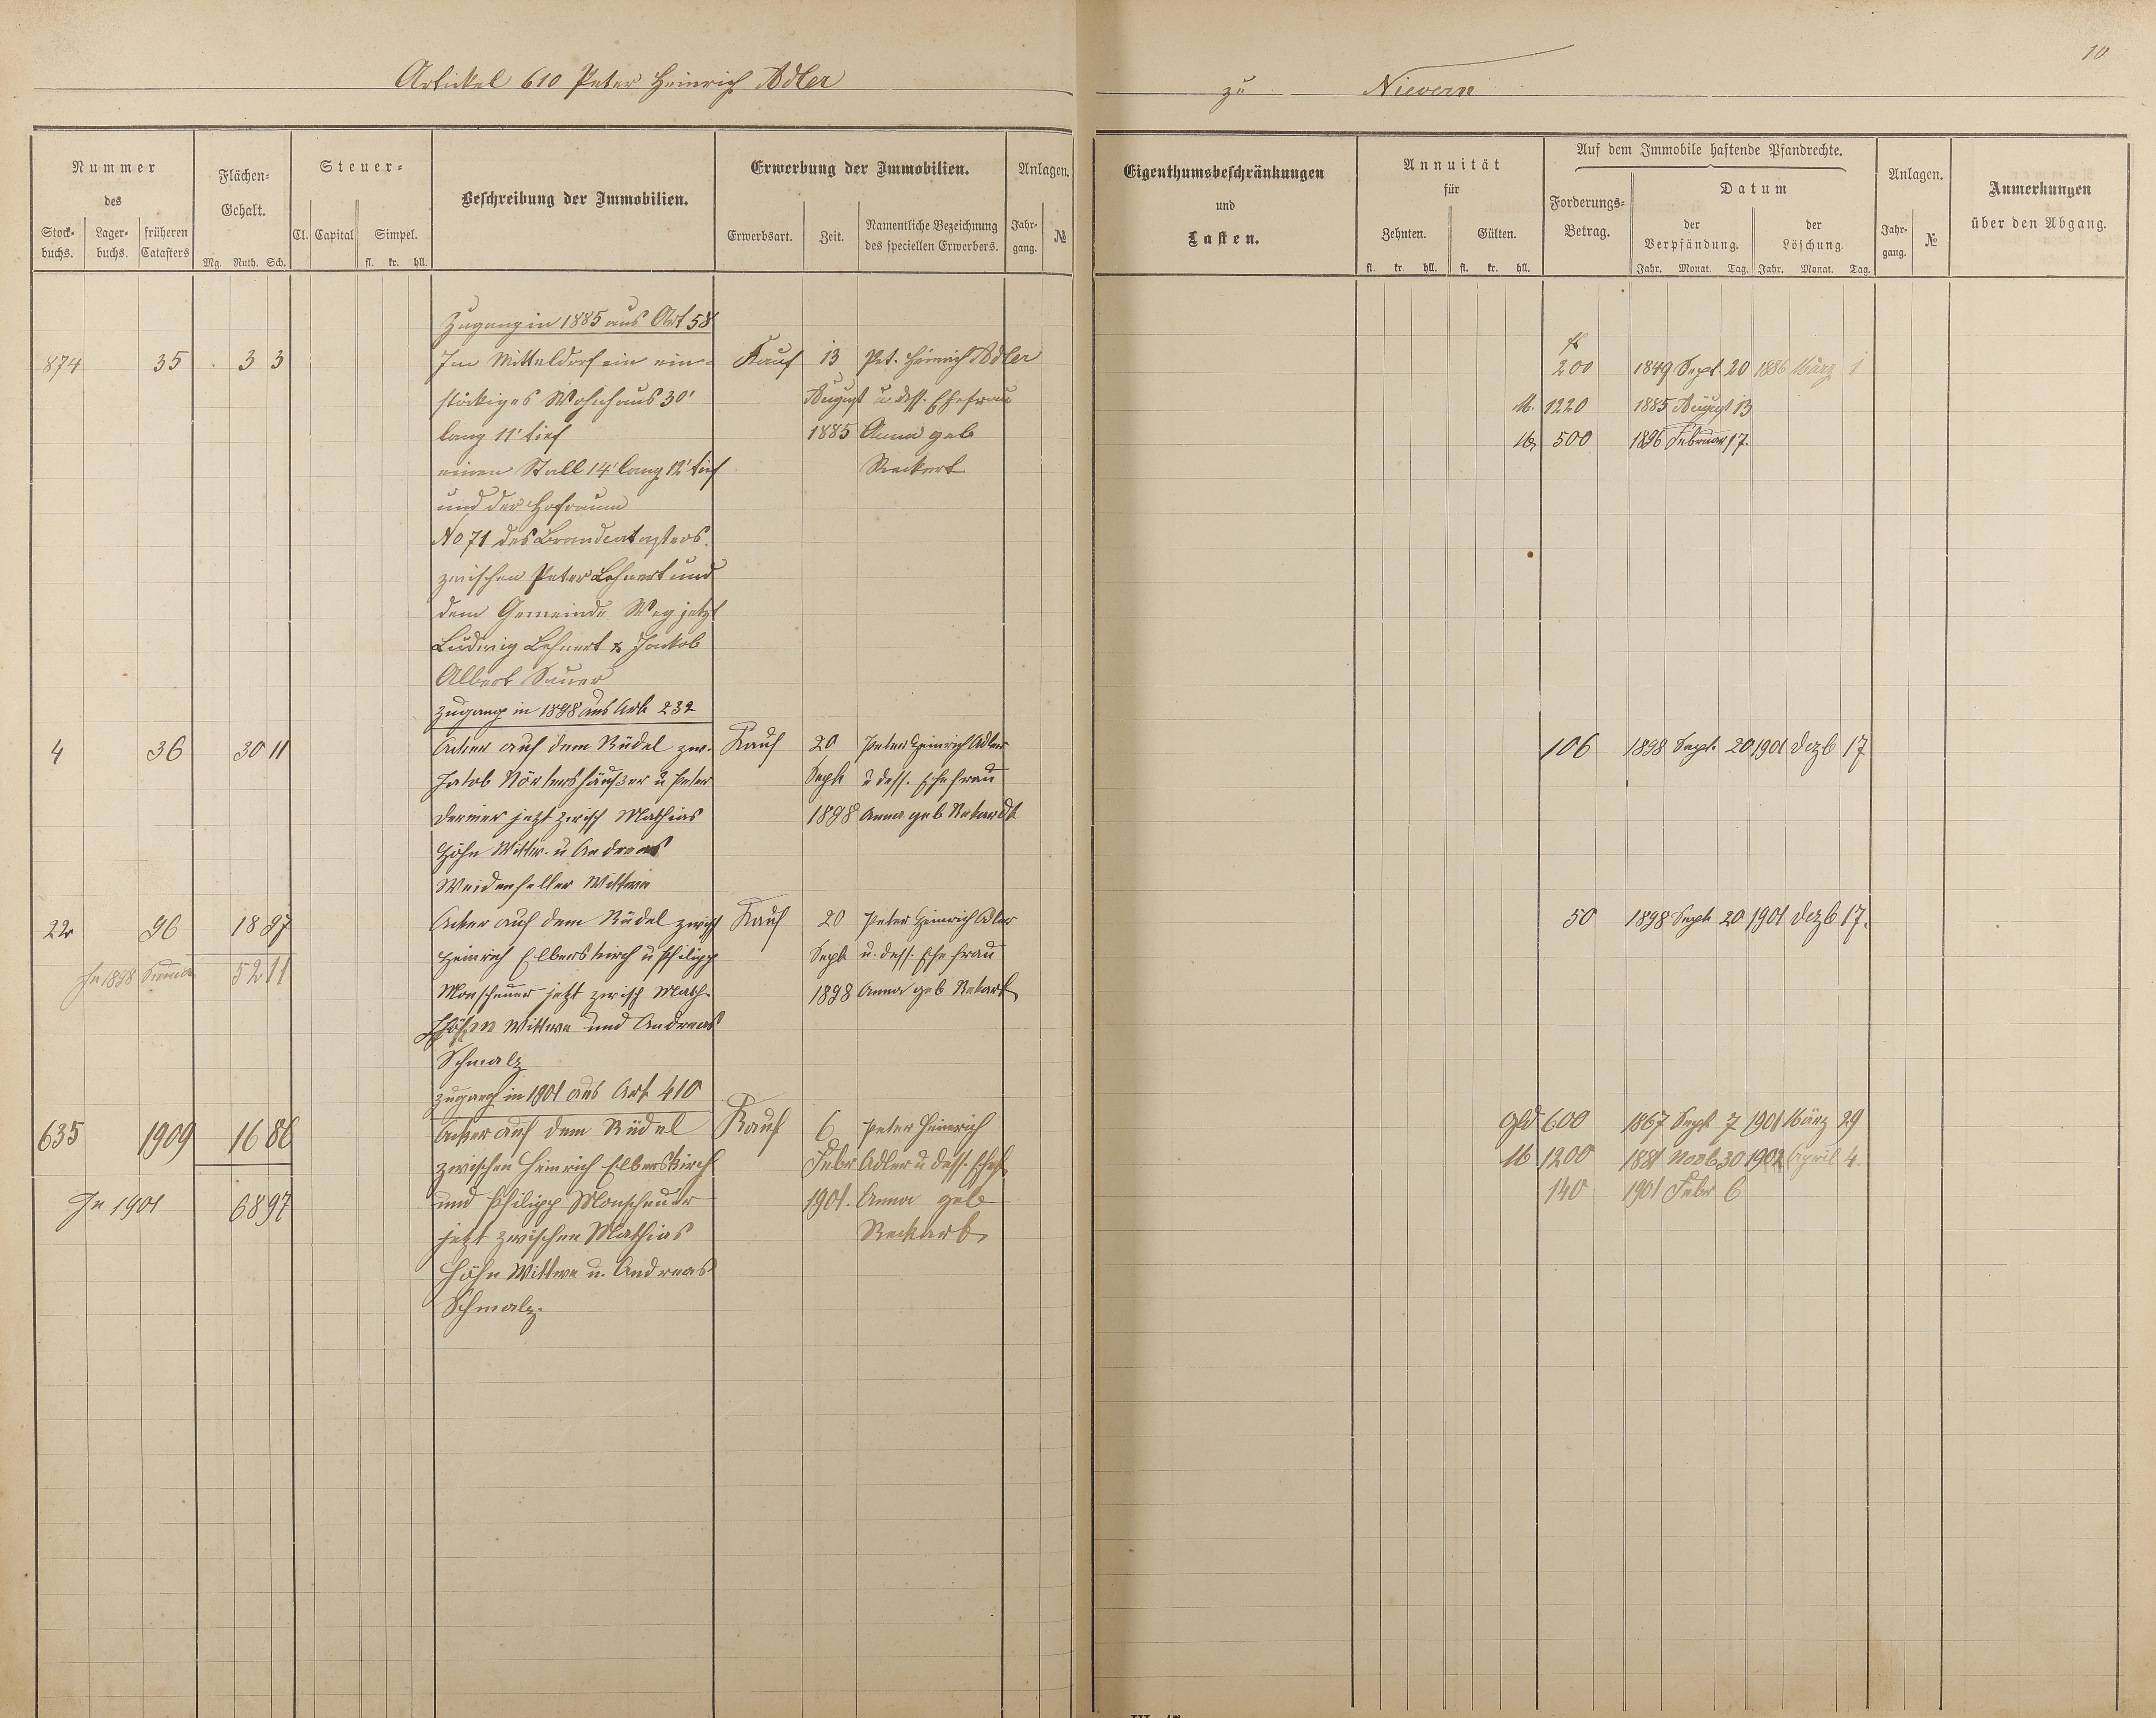 10
Artickel 610 Peter Heinrich Adler zu Nievern
Nummer des
Stock-buchs. Lager-buchs. früheren Catasters
Flächen-Gehalt.
Mg. Ruth. Sch.
Steuer-
Cl. Capital Simpel.
fl. kr. hll.
Beschreibung der Immobilien.
Erwerbung der Immobilien.
Erwerbsart. Zeit. Namentliche Bezeichnung des speciellen Erwerbers.
Anlagen.
Jahr-gang. №
Eigenthumsbeschränkungen und Lasten.
Annuität für
Zehnten. Gülten.
fl. kr. hll. fl. kr. hll.
Auf dem Immobile haftende Pfandrechte.
Forderungs-Betrag.
Datum
der Verpfändung. der Löschung.
Jahr. Monat. Tag. Jahr. Monat. Tag.
Anlagen.
Jahr-gang. №
Anmerkungen über den Abgang.
Zugang in 1885 aus Art 58
874 35 3 3 Im Mitteldorf ein ein- Kauf 13 Pet. Heinrich Adler 200 1849 Sept. 20 1886 März 1
stöckiges Wohnhaus 30' August u. dess. Ehefrau M. 1220 1885 August 13
lang 11' tief 1885 Anna geb M 500 1896 Februar 17.
einen Stall 14' lang 12' tief Reckert
und der Hofraum
No 71 des Brandcatasters
zwischen Peter Lehnert und
dem Gemeinde Weg jetzt
Ludwig Lehnert & Jackob
Albert Sauer
Zugang in 1898 aus Art 232
4 36 30 11 Acker auf dem Rüdel zw. Kauf 20 Peter Heinrich Adler 106 1898 Sept. 20 1901 Dezb 17
Jakob Nörtershäußer u Peter Sept u dess. Ehefrau
jetzt zwisch Mathias 1898 Anna geb Rekardt
Höhn Wittw. u Andreas
Weidenfeller Wittwe
22 96 18 97 Acker auf dem Rüdel zwisch Kauf 20 Peter Heinrich Adler 50 1898 Sept 20 1901 Dezb 17.
In 1898 Summa 52 11 Heinrich Elberskirch u Philipp Sept u. dess. Ehefrau
Monscheuer jetzt zwisch Math. 1898 Anna geb Rekart
Höhn Wittwe und Andreas
Schmalz
Zugang in 1901 aus Art 410
635 1909 16 86 Acker auf dem Rüdel Kauf 6 Peter Heinrich Gld 600 1867 Sept 7 1901 März 29
zwischen Heinrich Elberskirch Febr Adler u dess. Ehef M 1200 1881 Novb 30 1902 April 4.
In 1901 68 97 und Philipp Monscheuer 1901. Anna geb 140 1901 Febr 6
jetzt zwischen Mathias Reckart
Höhn Wittwe u. Andreas
Schmalz.